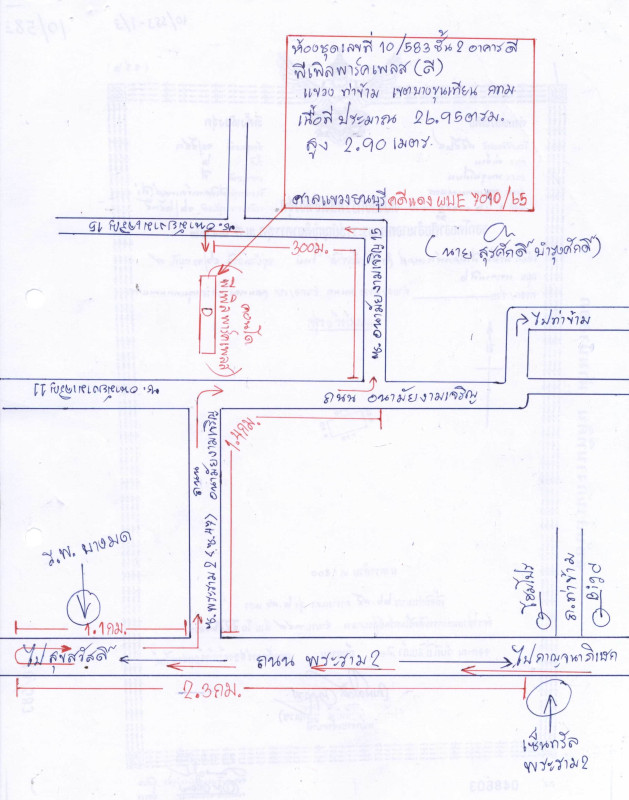 ห้องชุดเลขที่ 10/583 ชั้น 2 อาคารดี
พีเพิลพาร์คเพลส (ดี)
แขวง ท่าข้าม เขตบางขุนเทียน กทม
เนื้อที่ ประมาณ 26.95 ตรม.
สูง 2.90 เมตร.
ศาลแขวงธนบุรี คดีแดง ผบE 7090/65
(นาย สุรศักดิ์ บำรุงศักดิ์)
ซ. อนามัยงามเจริญ 15
300 ม.
ซ. อนามัยงามเจริญ 12
คอนโด
พีเพิลพาร์คเพลส
D
ไปท่าข้าม
ซ. อนามัยงามเจริญ 11
ถนน อนามัยงามเจริญ
1.4 กม.
ถนน อนามัยงามเจริญ
ซ. พระราม 2 (ซ.47)
ร.พ. บางมด
โฮมโปร
ถ.ท่าข้าม
Bigc
1.1 กม.
ไปสุขสวัสดิ์
ถนน พระราม 2
ไปกาญจนาภิเษก
2.3 กม.
เซ็นทรัล
พระราม 2